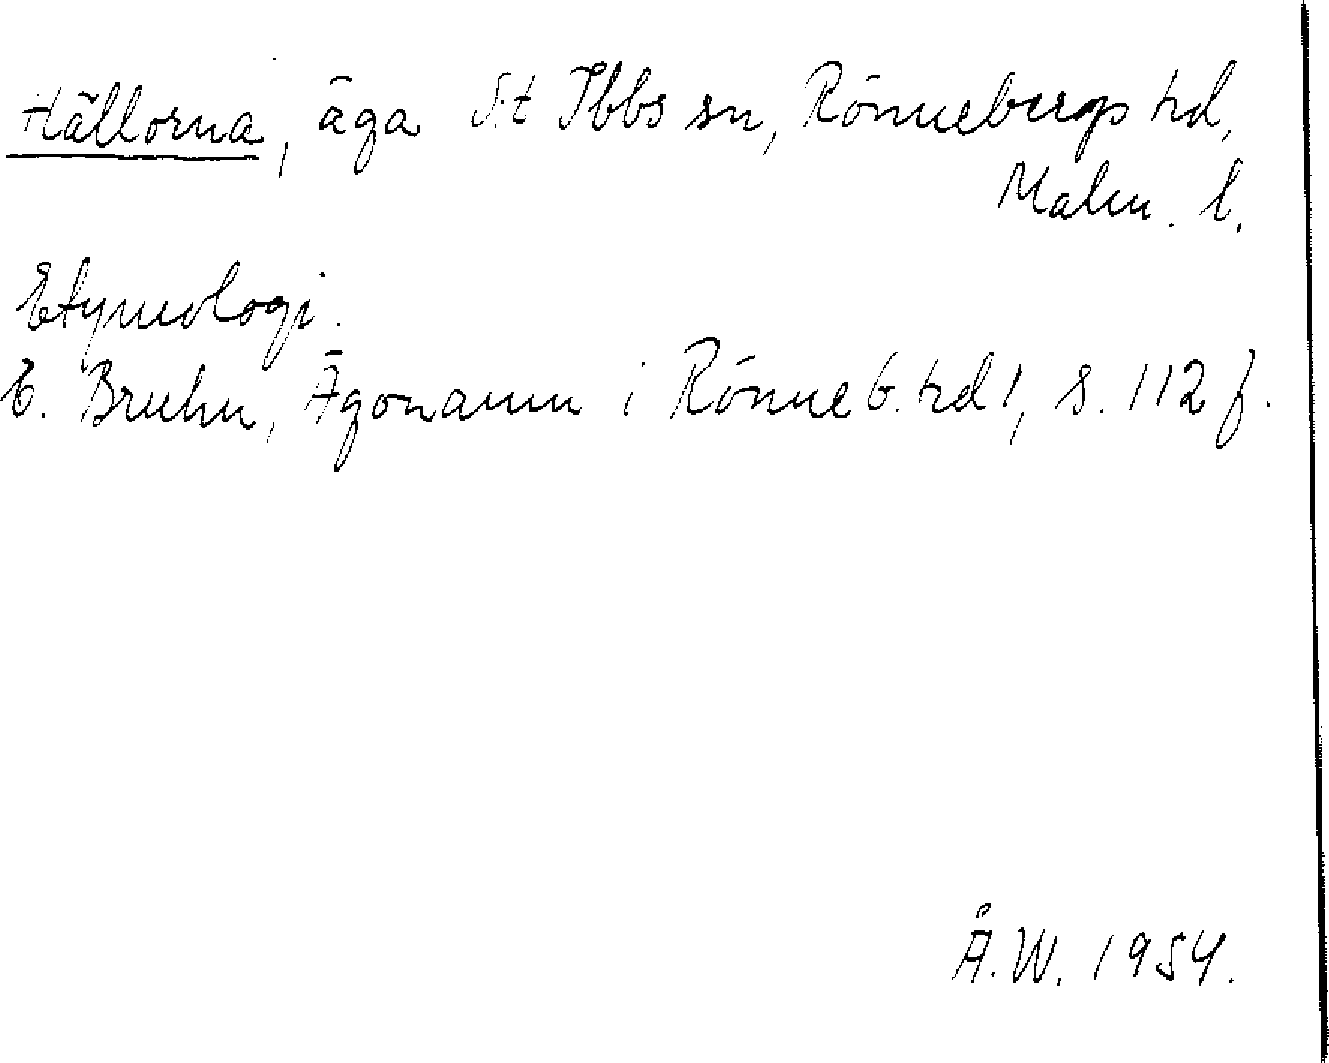 Hällorna, äga S:t Ibbs sn, Rönnebergs hd,
Malm. l.
Etymologi.
E. Bruhn, Ägonamn i Rönneb. hd 1, s. 112 f.
Å.W. 1954.